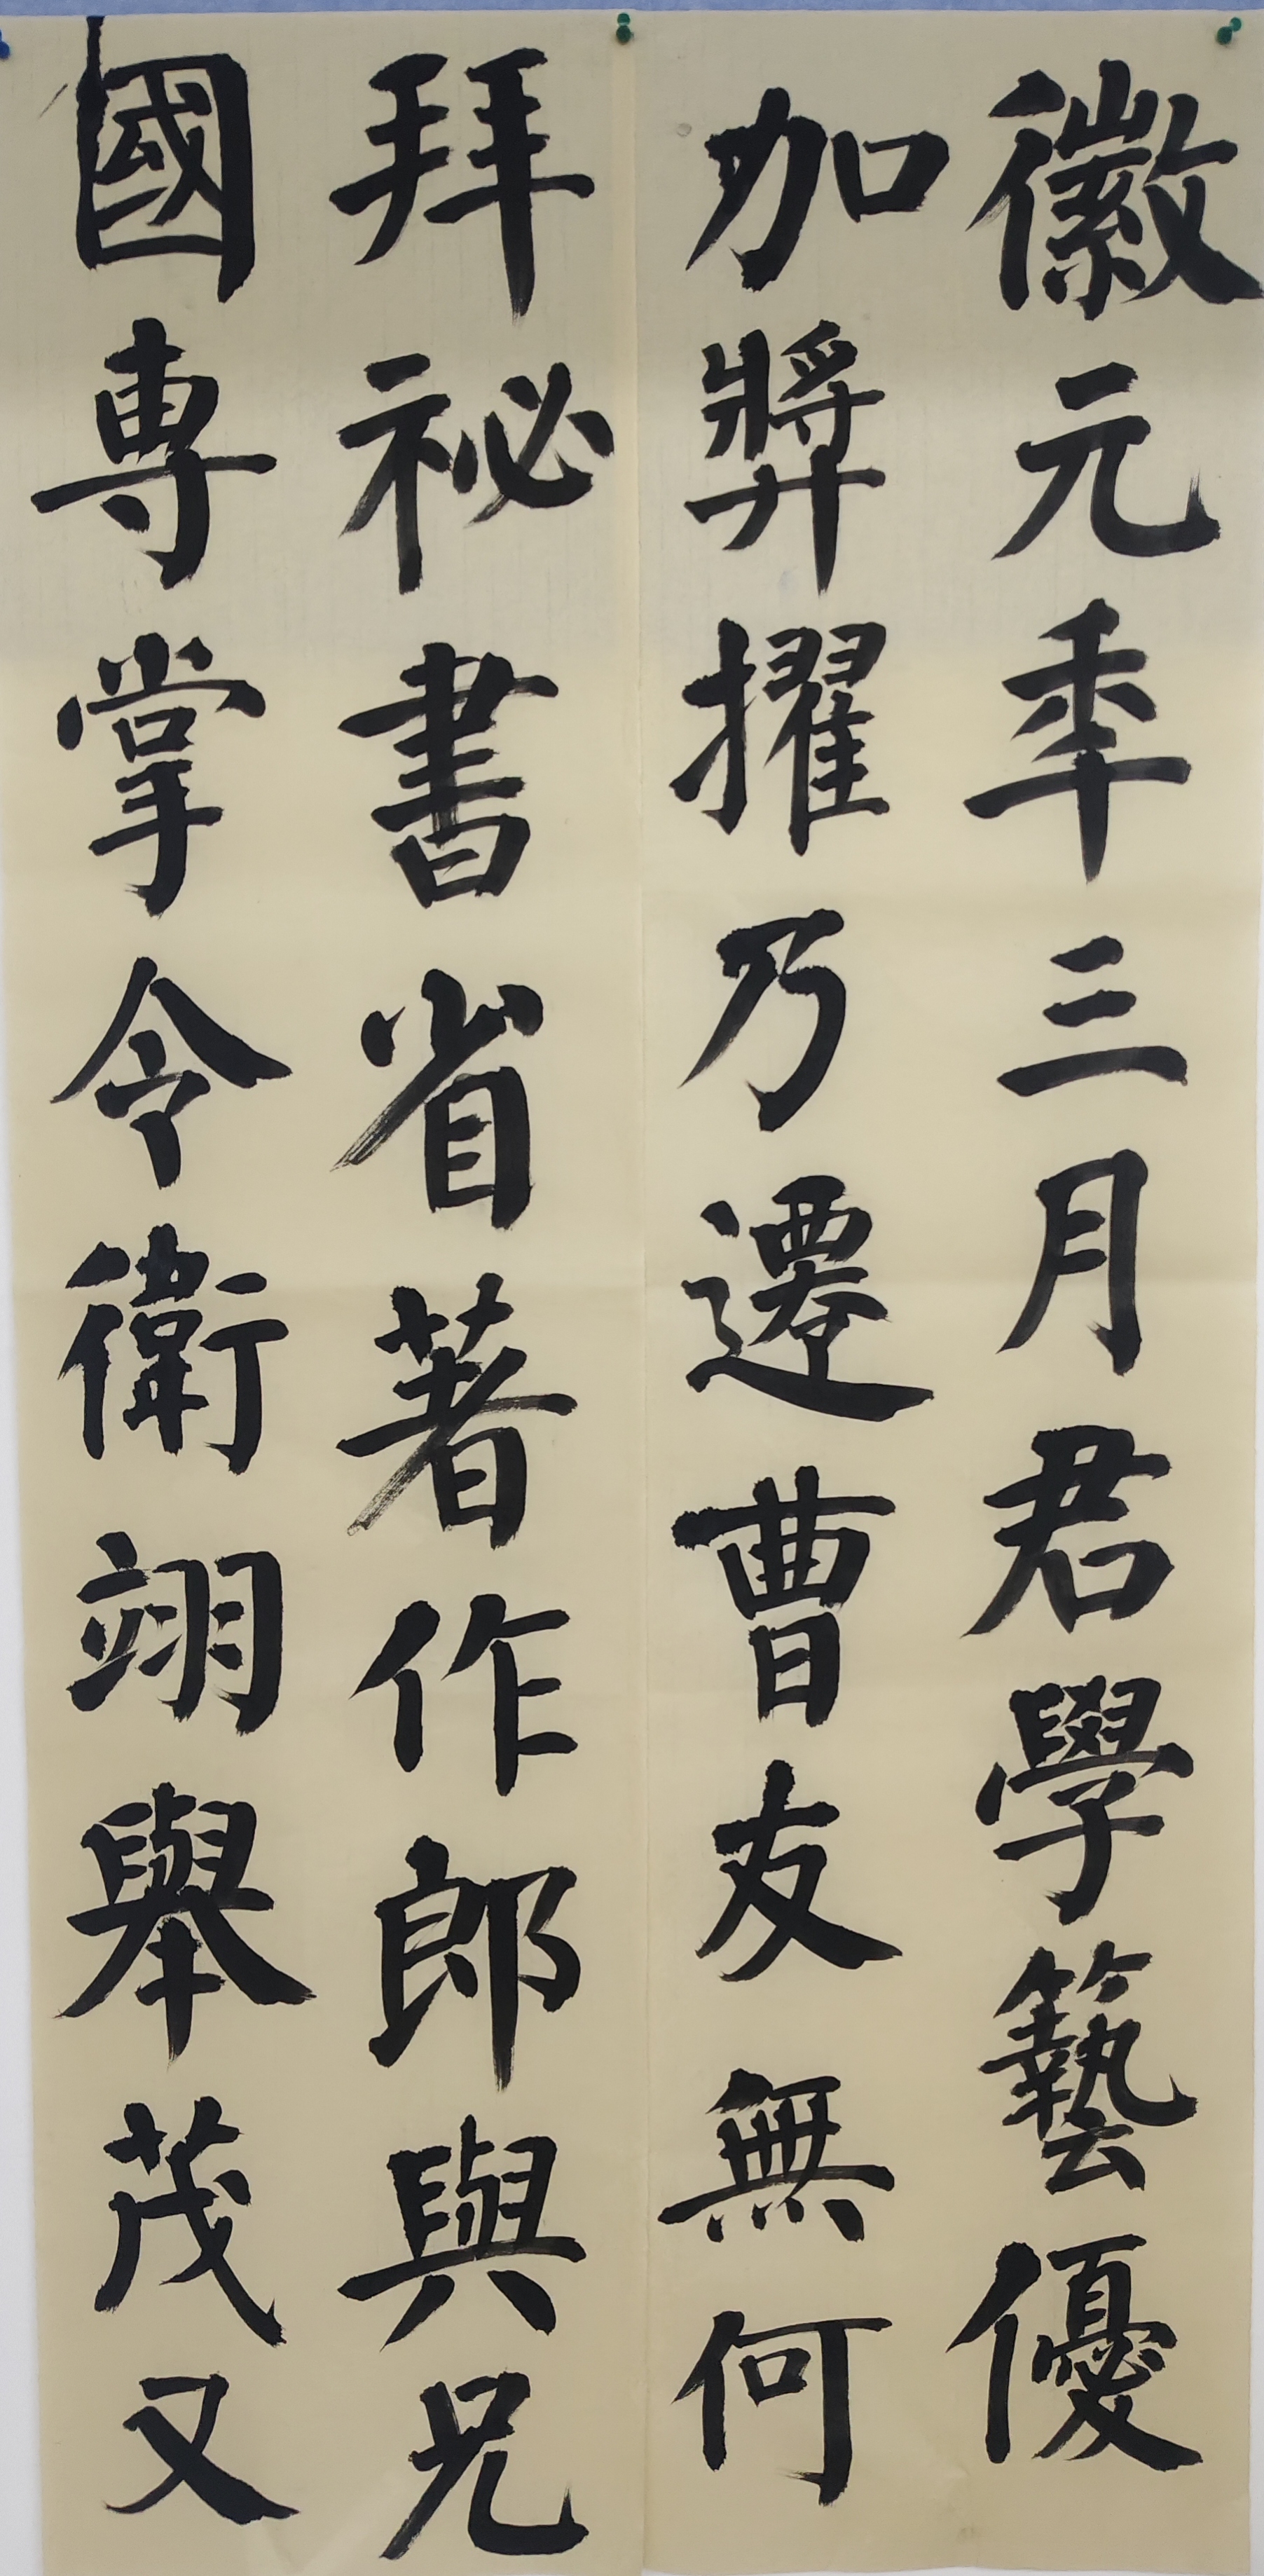 徽元秊三月君學藝優
加奬擢乃遷曹友無何
拜祕書省著作郎與兄
國專掌令衛翊舉茂又